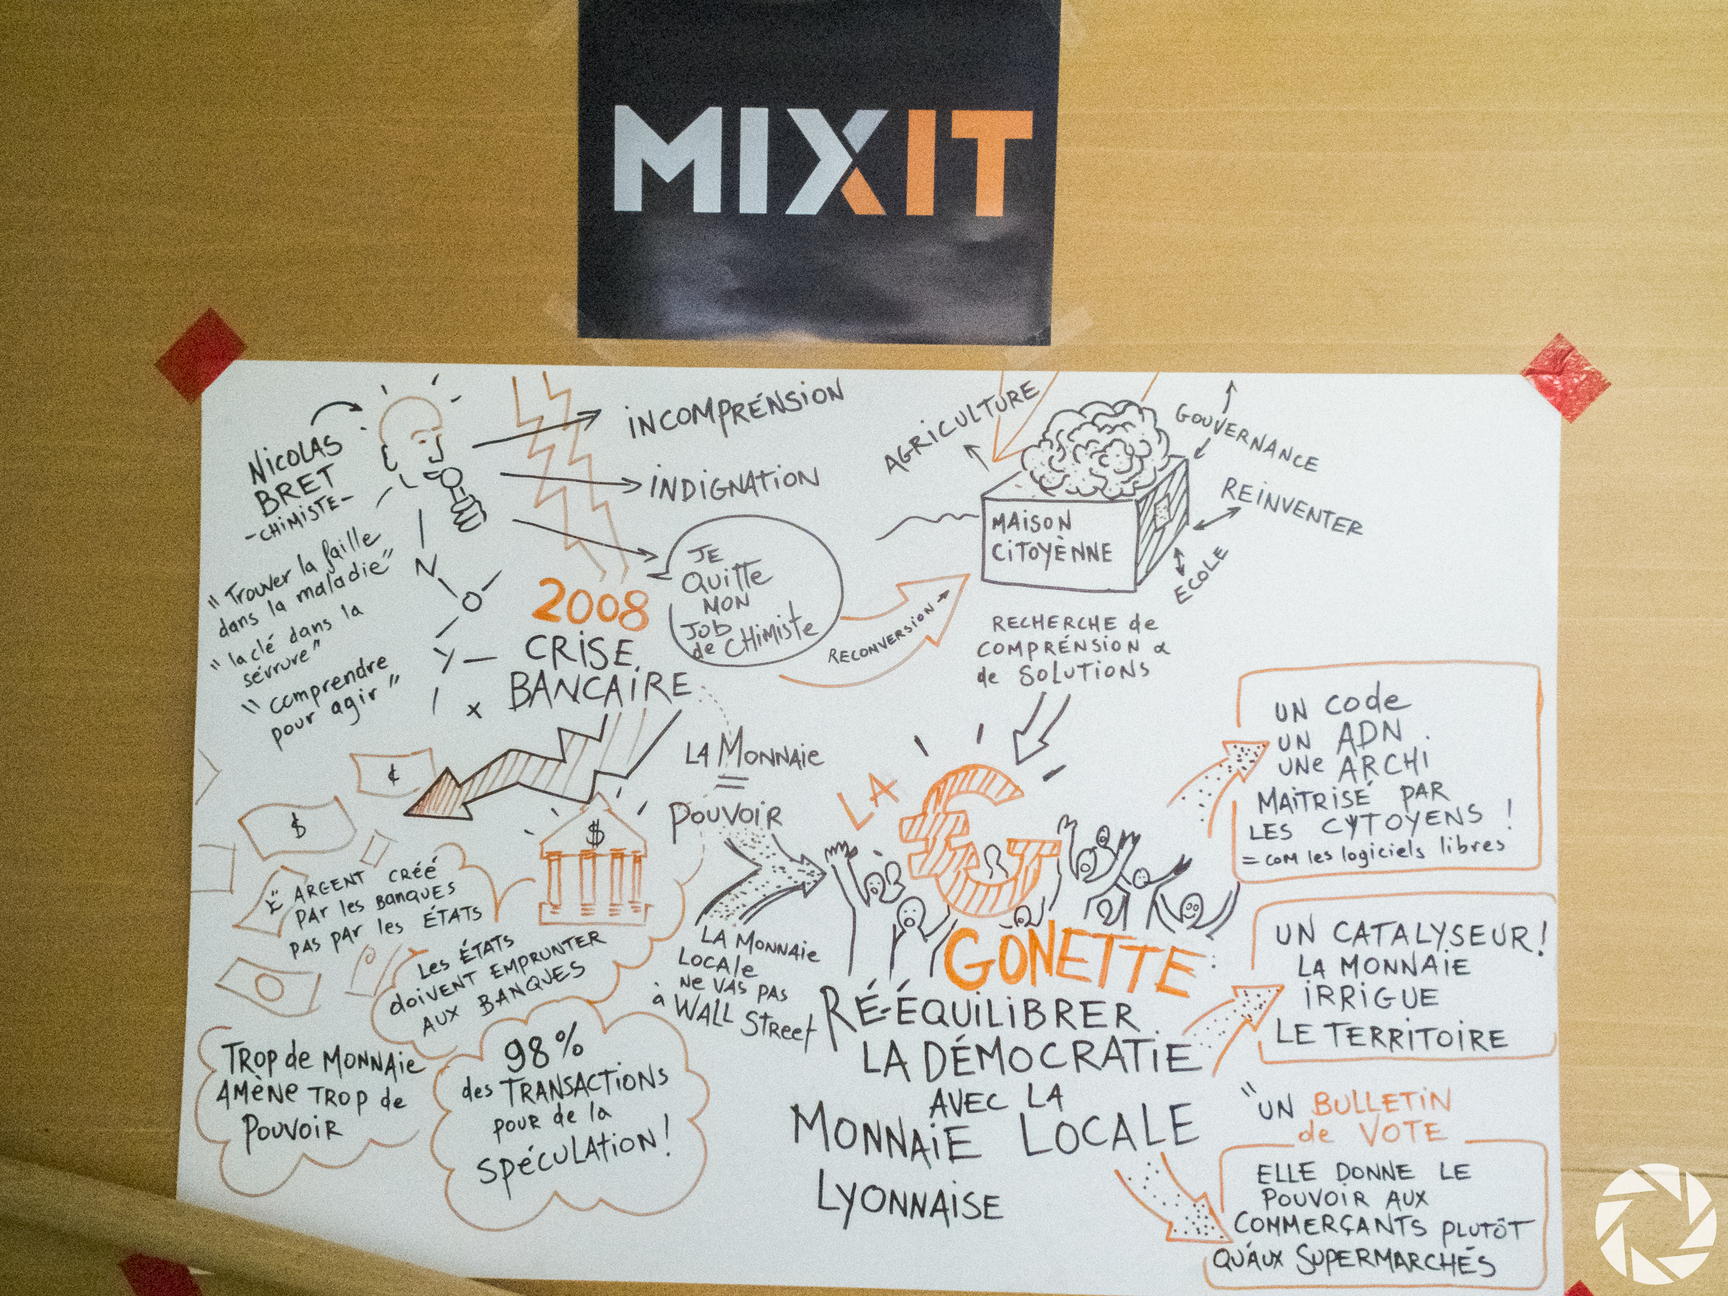 MIXIT
NICOLAS
BRET
-CHIMISTE-
"Trouver la faille
dans la maladie"
"la clé dans la
sérrure"
"comprendre
pour agir"
INCOMPRÉNSION
INDIGNATION
JE
QUITTE
MON
JOB
de CHIMISTE
2008
CRISE
BANCAIRE
RECONVERSION
AGRICULTURE
GOUVERNANCE
REINVENTER
ECOLE
MAISON
CITOYÈNNE
RECHERCHE de
COMPRÉNSION &
de SOLUTIONS
LA MONNAIE
=
POUVOIR
¢
$
$
ARGENT CRÉÉ
PAR les BANQUES
PAS PAR les ÉTATS
Les ÉTATS
doivent EMPRUNTER
AUX BANQUES
TROP de MONNAIE
AMÈNE TROP de
POUVOIR
98%
des TRANSACTIONS
POUR de la
SPÉCULATION!
LA MONNAIE
LOCALE
NE VAS PAS
à WALL STREET
LA
GONETTE:
RÉ-ÉQUILIBRER
LA DÉMOCRATIE
AVEC LA
MONNAIE LOCALE
LYONNAISE
UN CODE
UN ADN.
UNE ARCHI
MAITRISÉ PAR
LES CYTOYENS!
= COM les logiciels libres
UN CATALYSEUR!
LA MONNAIE
IRRIGUE
LE TERRITOIRE
"UN BULLETIN
de VOTE
ELLE DONNE LE
POUVOIR AUX
COMMERÇANTS PLUTÔT
QU'AUX SUPERMARCHÉS